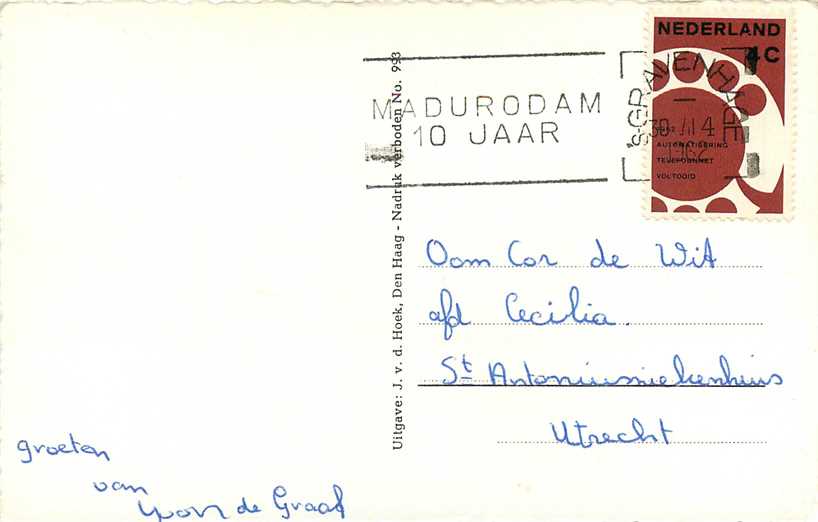 NEDERLAND
4C
1962
AUTOMATISERING
TELEFOONNET
VOLTOOID
'S-GRAVENHAGE
1962
MADURODAM
10 JAAR
Uitgave: J. v. d. Hoek, Den Haag - Nadruk verboden No. 993
Oom Cor de Wit
afd Cecilia.
St Antoniusziekenhuis
Utrecht
groeten
van
Yvon de Graaf